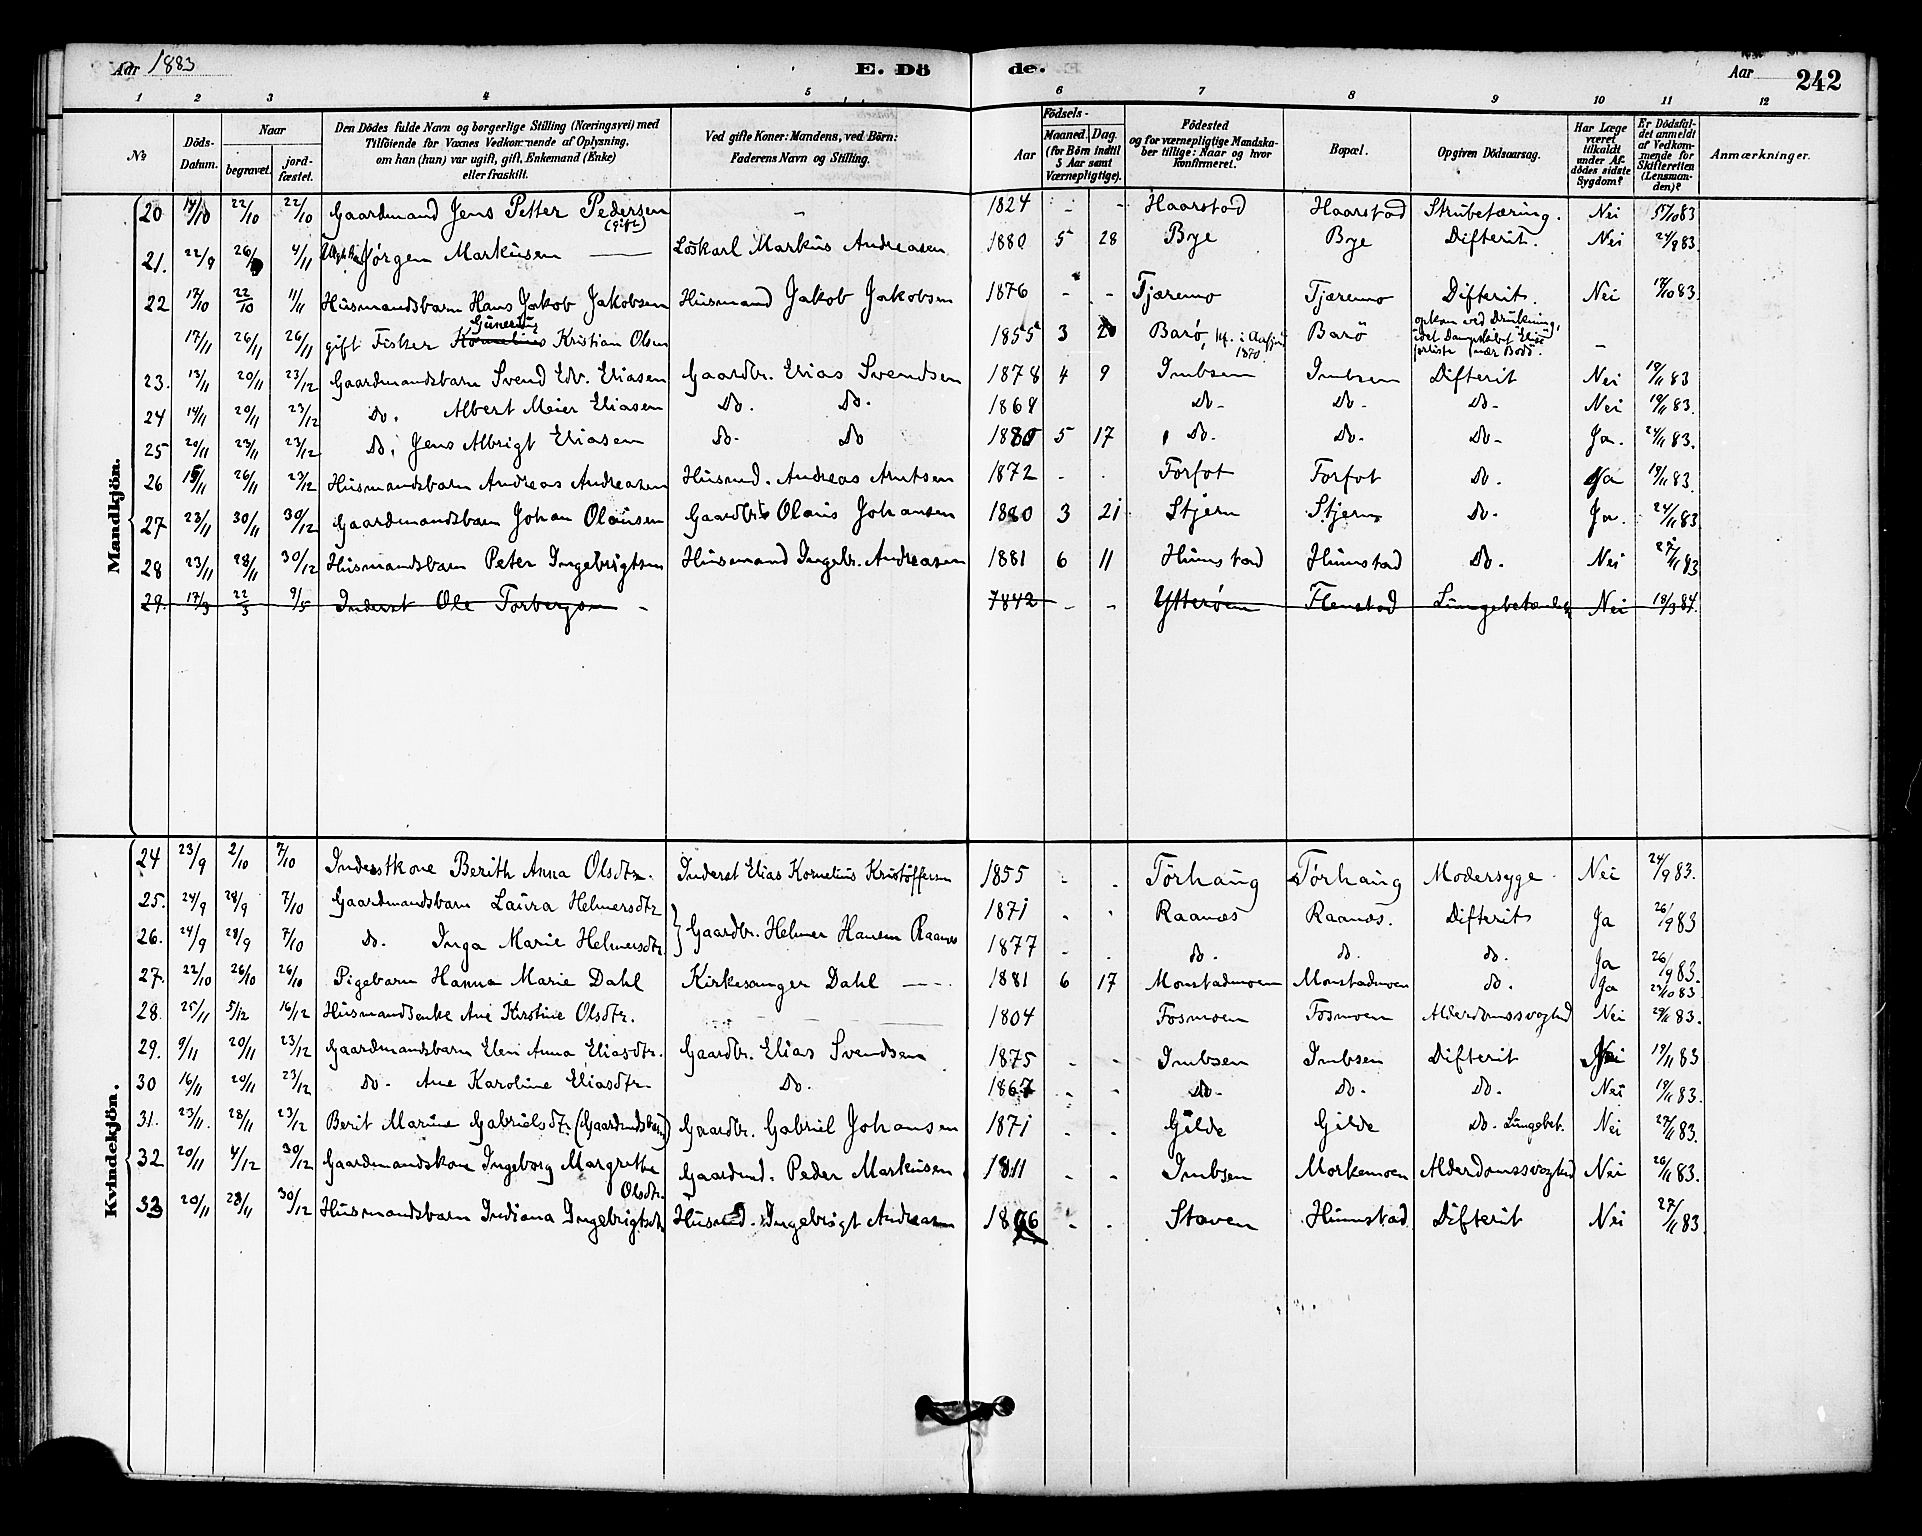 Aar 1883 E. Dö de. Aar 242
1 2 3 4 5 6 7 8 9 10 11 12
No Döds-Datum. Naar begravet. jord-fæstet. Den Dödes fulde Navn og borgerlige Stilling (Næringsvei) med Tilföiende for Vaxnes Vedkommende af Oplysning, om han (hun) var ugift, gift, Enkemand (Enke) eller fraskilt. Ved gifte Koner: Mandens, ved Börn: Faderens Navn og Stilling. Födsels- Aar Maaned. Dag. (for Börn indtil 5 Aar samt Værnepligtige). Födested og for værnepligtige Mandskaber tillige: Naar og hvor konfirmeret. Bopæl. Opgiven Dödsaarsag. Har Læge været tilkaldt under Afdödes sidste Sygdom? Er Dödsfaldet anmeldt af Vedkommende for Skifteretten (Lensmanden)? Anmærkninger.
Mandkjön.
20 22/10 22/10 Gaardmand Jens Petter Pedersen (gift) - 1824 - - Haarstad Haarstad Strubetæring. Nei 83
21. 22/9 4/11 Jørgen Markusen Löskarl Markus Andreasen 1880 5 28 Bye Bye Difterit. Nei 24/9 83.
22 17/10 22/10 11/11 Husmandsbarn Hans Jakob Jakobsen Husmand Jakob Jakobsen 1876 - - Tjæremo Tjæremo Difterit. Nei 18/10 83.
17/11 26/11 26/11 gift Fisker Kornelius Kristian Olsen 1855 3 20 Barø, 1870 Barö omkom ved Drukning, idet Dampskibet forliste nær Bodö. -
23. 13/11 20/11 23/12 Gaardmandsbarn Svend Edv. Eliasen Gaardbr. Elias Svendsen 1878 4 9 Imbsen Imbsen Difterit Nei 19/11 83
24 14/11 20/11 23/12 Do. Albert Meier Eliasen Do. Do. 1869 Do- Do- Do- Nei 19/11 83.
25 20/11 23/11 23/12 Do. Jens Albrigt Eliasen Do. Do 1880 5 17 Do. Do- Do- Ja. 24/11 83.
26 15/11 26/11 23/12 Husmandsbarn Andreas Andreasen Husmd. Andreas Arntsen 1872 - . Forfot Forfot Do. Ja 19/11 83.
27 23/11 30/11 30/12 Gaardmandsbarn Johan Olausen Gaardbr. Olaus Johansen 1880 3 21 Stjern Stjern Do. Ja. 24/11 83
28 23/11 28/11 30/12 Husmandsbarn Peter Ingebrigtsen Husmand Ingebr. Andreasen 1881 6 11 Humstad Humstad Do. Nei 27/11 83
29. 17/3 22/3 9/5 Inderst Ole Torbergsen - 1842 - - Ytterøen Flenstad Lungebetændelse Nei 18/3 84.
Kvindekjön.
24 23/9 2/10 7/10 Inderstkone Berith Anna Olsdtr. Inderst Elias Kornelius Kristoffersen 1855 - . Torhaug Torhaug Modersyge. Nei 24/9 83.
25. 24/9 28/9 7/10 Gaardmandsbarn Laura Helmersdtr 1871 - . Raanæs Raanæs. Difterit Ja 26/9 83
26. 24/9 28/9 7/10 Do. Inga Marie Helmersdtr. Gaardbr. Helmer Hansen Raanæs 1877 - . do. do. do. Ja 26/9 83.
27. 22/10 26/10 26/10 Pigebarn Hanna Marie Dahl Kirkesanger Dahl 1881 6 17 Monstadmoen Monstadmoen do. Ja 23/10 83
28. 25/11 5/12 16/12 Husmandsenke Ane Kirstine Olsdtr. 1804 Fosmoen Fosmoen Alderdomssvaghed Nei 29/11 83.
29. 9/11 20/11 23/12 Gaardmandsbarn Elen Anna Eliasdtr. Gaardbr. Elias Svendsen 1875 - - Imbsen Imbsen Difterit Nei 19/11 83
30 16/11 20/11 23/12 Do. Ane Karoline Eliasdtr Do. 1867 - - Do. Do. Do. Nei 19/11 83.
31. 23/11. 28/11 23/12 Berit Marine Gabrielsdtr. (Gaardmdsbarn) Gaardbr. Gabriel Johansen 1871 . . Gilde Gilde Do. Lungebet. Nei 27/11 83.
32 20/11 4/12 30/12 Gaardmandskone Ingeborg Margrethe Olsdtr. Gaardmd. Peder Markusen 1811 - - Imbsen Morkemoen Alderdomssvaghed Nei 26/11 83.
33 20/11 28/11 30/12 Husmandsbarn Indiana Ingebrigtsdtr Husmd. Ingebrigt Andreasen 1876 - . Staven Humstad Difterit Nei 27/11 83